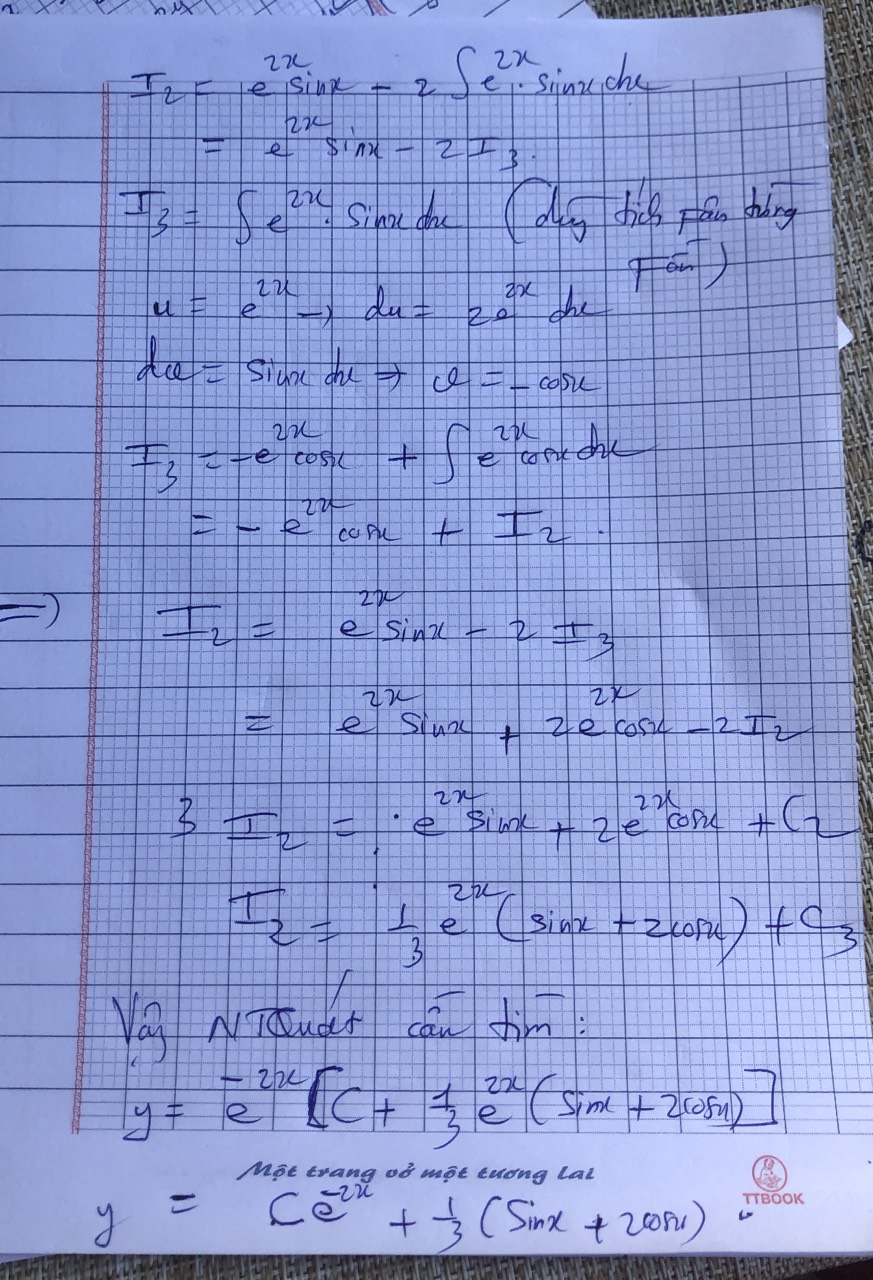 I₂ = e²ˣ sinx - 2 ∫ e²ˣ . sinx dx
= e²ˣ sinx - 2 I₃.
I₃ = ∫ e²ˣ . sinx dx (dùg tích Fân từng
Fần)
u = e²ˣ → du = 2e²ˣ dx
dv = sinx dx → v = -cosx
I₃ = -e²ˣ cosx + ∫ e²ˣ cosx dx
= - e²ˣ cosx + I₂ .
=) I₂ = e²ˣ sinx - 2 I₃
= e²ˣ sinx + 2e²ˣ cosx - 2 I₂
3 I₂ = e²ˣ sinx + 2e²ˣ cosx + C₂
I₂ = 1/3 e²ˣ (sinx + 2cosx) + C₃
Vậy NTQuát cần tìm :
y = e⁻²ˣ [C + 1/3 e²ˣ (sinx + 2cosx)]
Một trang vở một tương lai
TTBOOK
y = Ce⁻²ˣ + 1/3 (sinx + 2cosx) .